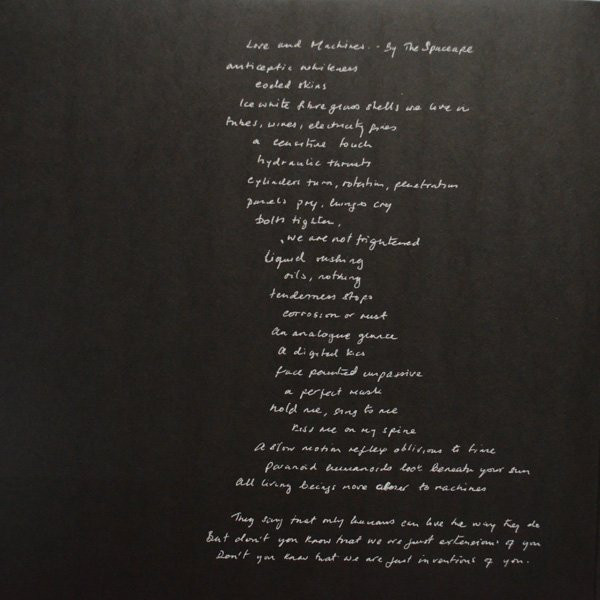 Love and Machines.. By The Spaceape
anticeptic whiteness
cooled skins
Ice white fibre glass shells we live in
tubes, wires, electricity fires
a sensitive touch
hydraulic thrusts
cylinders turn, rotation, penetration
panels pry, hinges cry
bolts tighten,
we are not frightened
Liquid rushing
oils, nothing
tenderness stops
corrosion or rust
An analogue glance
A digital kiss
face painted impassive
a perfect mask
hold me, sing to me
kiss me on my spine
A slow motion reflex oblivious to time
paranoid humanoids look beneath your
All living beings move closer to machines
They say that only humans can love the way they do
But don't you know that we are just extensions of you
Don't you know that we are just inventions of you.